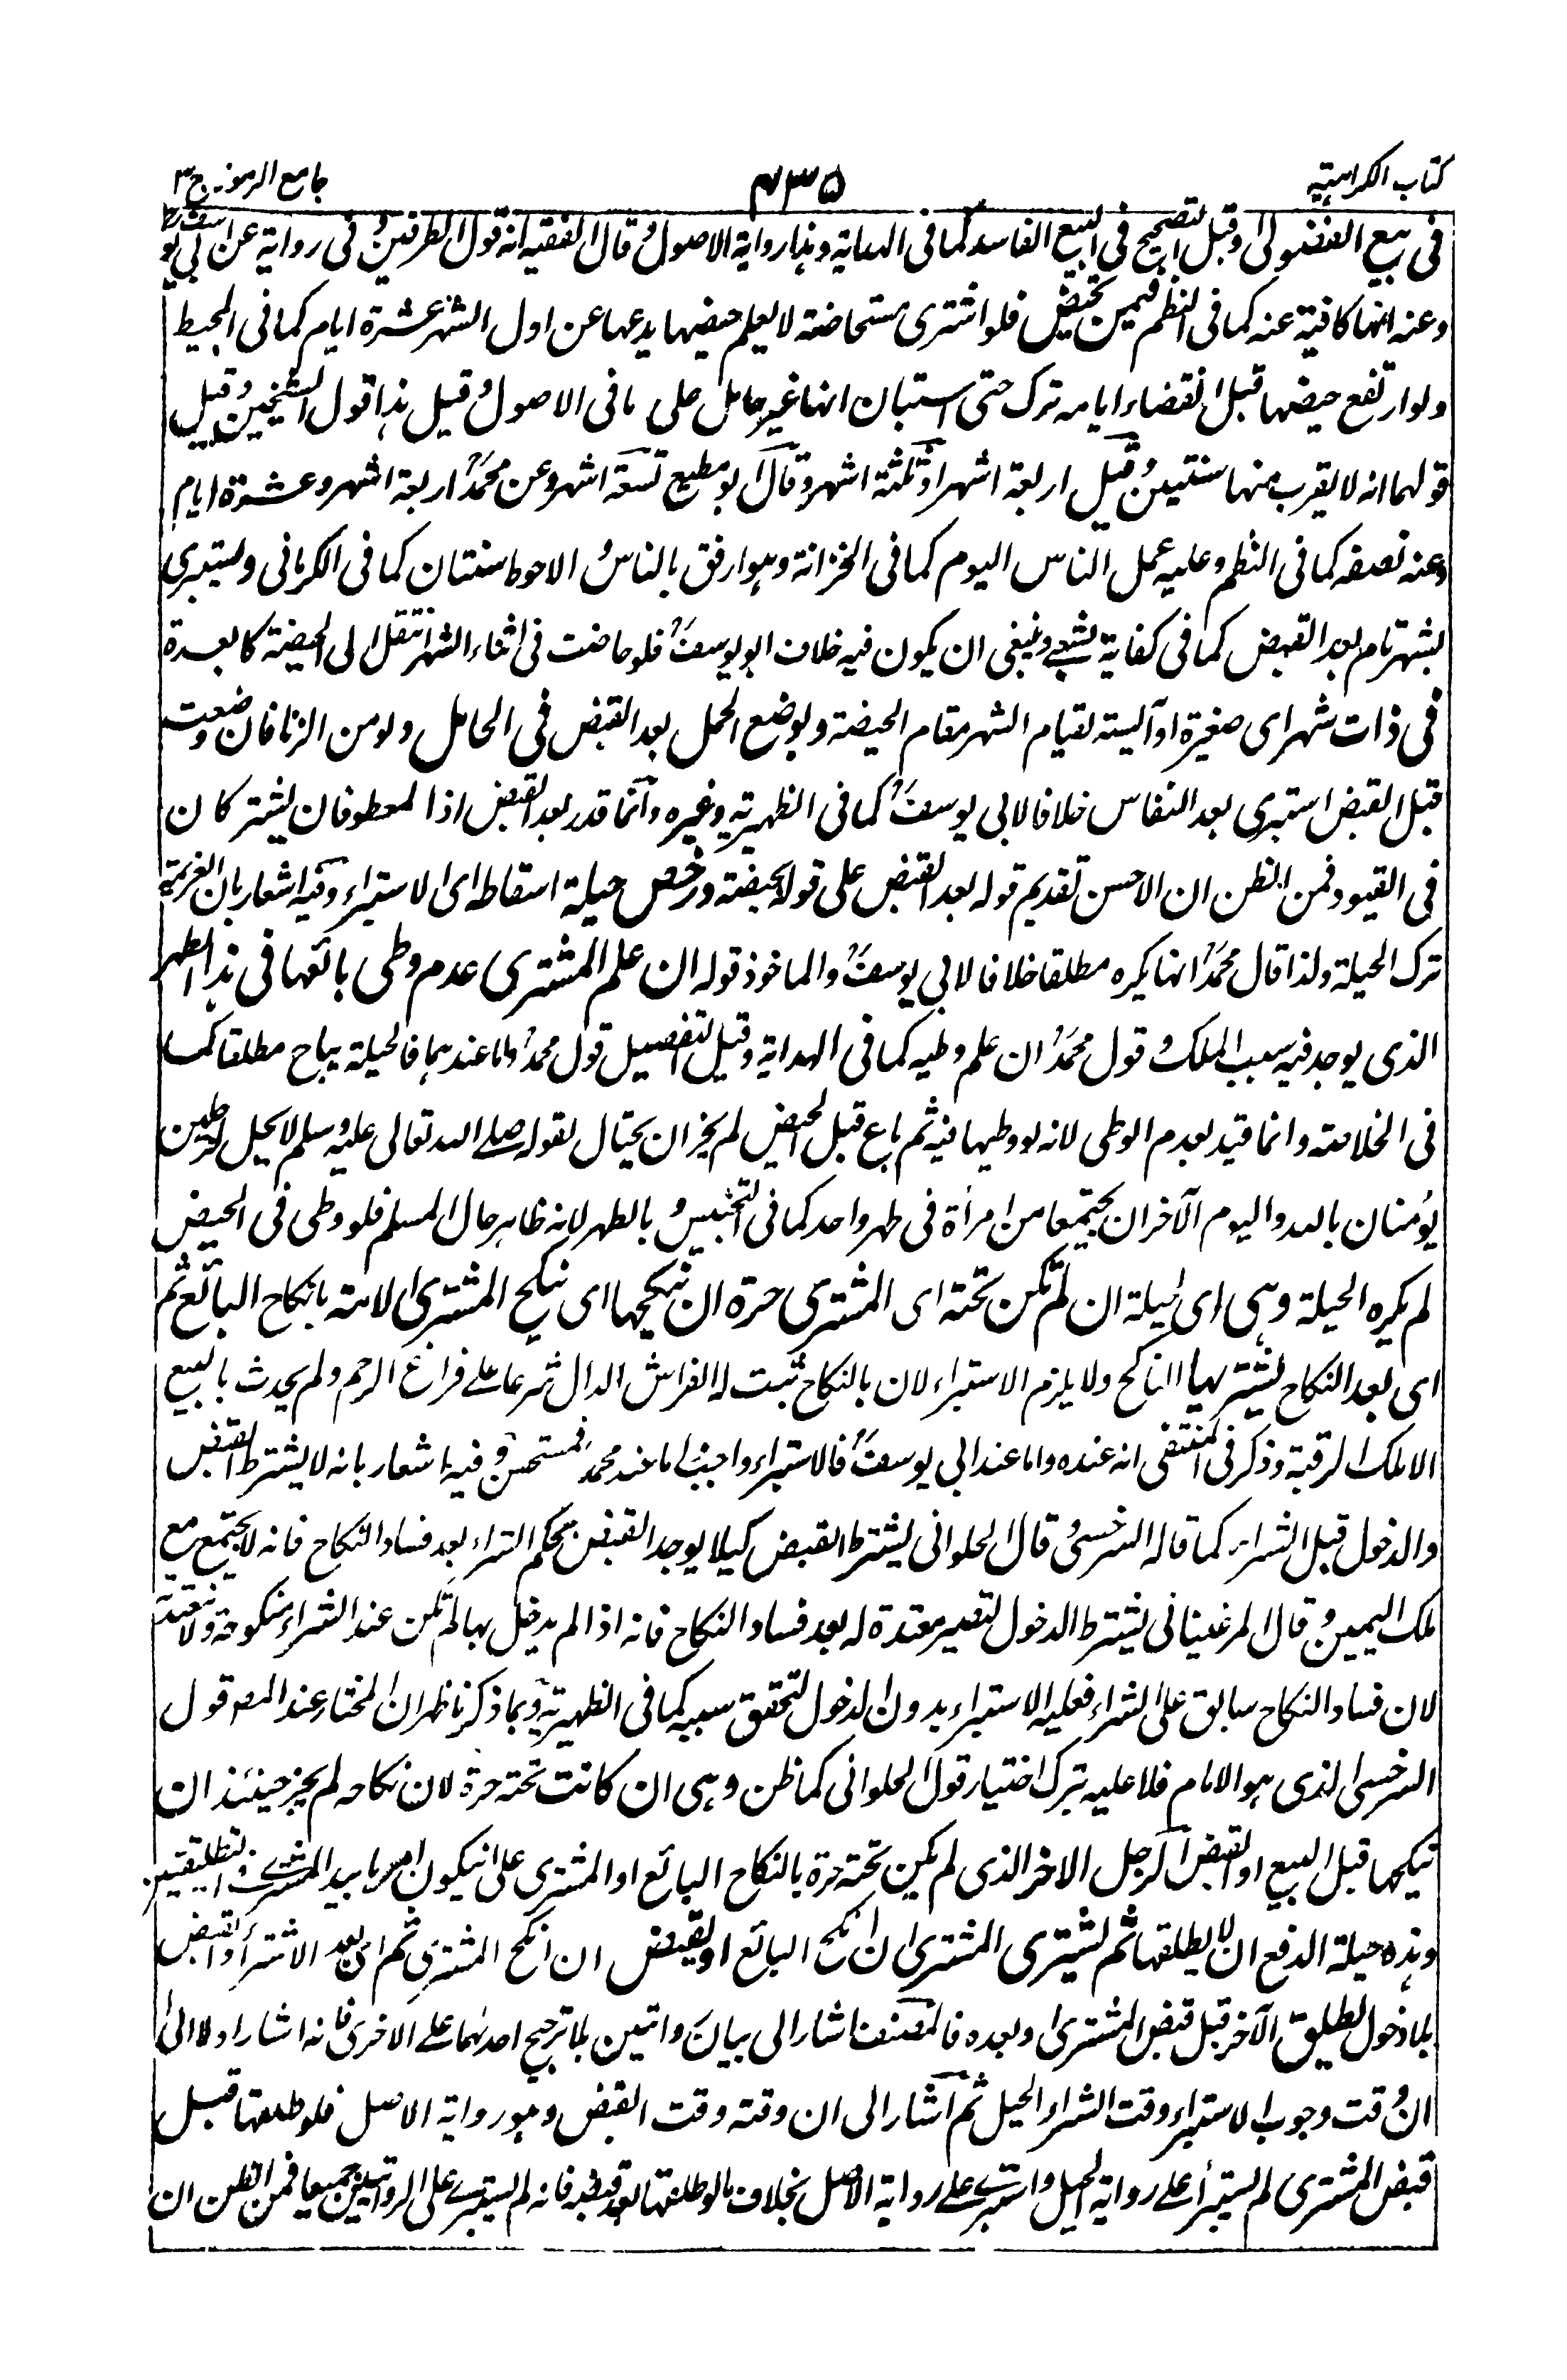 كتاب الكراهية ۵۳۴ جامع الرموز ج ۳
فى بيع الفضولى او قبل التصحيح فى البيع الفاسد كما فى الهداية وهذا رواية الاصول وقال الفقيه انه قول الطرفين وفى رواية عن ابى يوسف
وعنه انها كافية عنه كما فى النظم فيمن تحيض فلو اشترى مستحاضة لا يعلم حيضها يدعها عن اول الشهر عشرة ايام كما فى المحيط
ولو ارتفع حيضها قبل انقضاء ايامه ترك حتى استبان انها غير حامل على ما فى الاصول وقيل هذا قول الشيخين وقيل
قولهما انه لا يقرب منها سنتين وقيل اربعة اشهر او ثلثة اشهر وقال ابو مطيع تسعة اشهر وعن محمد اربعة اشهر وعشرة ايام
وعنه نصفه كما فى النظم وعليه عمل الناس اليوم كما فى الخزانة وهو ارفق بالناس والاحوط سنتان كما فى الكرمانى ويستبرى
بشهر تام بعد القبض كما فى كفاية الشعبى وينبغى ان يكون فيه خلاف ابو يوسف فلو حاضت فى اثناء الشهر انتقل الى الحيضة كالعدة
فى ذات شهر اى صغيرة او آئيسة لقيام الشهر مقام الحيضة وبوضع الحمل بعد القبض فى الحامل ولو من الزنا فان وضعت
قبل القبض استبرى بعد النفاس خلافا لابى يوسف كما فى الظهيرية وغيره وانما قدر بعد القبض اذا المعطوفان يشتركان
فى القيود فمن الظن ان الاحسن تقديم قوله بعد القبض على قوله بحيضة ورخص حيلة اسقاطه اى الاستبراء وفيه اشعار بان العزيمة
ترك الحيلة ولذا قال محمد انها يكره مطلقا خلافا لابى يوسف والماخوذ قوله ان علم المشترى عدم وطى بائعها فى هذا الطهر
الذى يوجد فيه سبب الملك وقول محمد ان علم وطيه كما فى الهداية وقيل التفصيل قول محمد واما عندهما فالحيلة يباح مطلقا كما
فى الخلاصة وانما قيد بعدم الوطى لانه لو وطيها فيه ثم باع قبل الحيض لم يجز ان يحتال لقوله صلى الله تعالى عليه وسلم لا يحل لرجلين
يؤمنان بالله واليوم الآخر ان يجتمعا من امرأة فى طهر واحد كما فى التجنيس وبالطهر لانه ظاهر حال المسلم فلو وطى فى الحيض
لم يكره الحيلة وهى اى الحيلة ان لم تكن تحته اى المشترى حرة ان ينكحها اى ينكح المشترى الامة بانكاح البائع ثم
اى بعد النكاح يشتريها الناكح ولا يلزم الاستبراء لان بالنكاح ثبت له الفراش الدال شرعا على فراغ الرحم ولم يحدث بالبيع
الا ملك الرقبة وذكر فى المنتقى انه عنده واما عند ابى يوسف فالاستبراء واجب اما عند محمد فمستحسن وفيه اشعار بانه لا يشترط القبض
والدخول قبل الشراء كما قاله السرخسى وقال الحلوانى يشترط القبض كيلا يوجد القبض بحكم الشراء بعد فساد النكاح فانه لا يجتمع مع
ملك اليمين وقال المرغينانى يشترط الدخول لتصير معتدة له بعد فساد النكاح فانه اذا لم يدخل بها لم تكن عند الشراء منكوحة ولا معتدة
لان فساد النكاح سابق على الشراء فعليه الاستبراء بدون الدخول لتحقق سببه كما فى الظهيرية وبما ذكرنا ظهر ان المختار عند المصـ قول
السرخسى الذى هو الامام فلا عليه بترك اختيار قول الحلوانى كما ظن وهى ان كانت تحته حرة لان نكاحه لم يجز حينئذ ان
ينكحها قبل البيع او القبض الرجل الاخر الذى لم يكن تحته حرة بالنكاح البائع او المشترى على ان يكون امرها بيد المشترى والتطليقتين
وهذه حيلة الدفع ان لا يطلقها ثم يشترى المشترى ان انكح البائع او يقبض ان انكح المشترى ثم اى بعد الاشتراء والقبض
بلا دخول لطليق الآخر قبل قبض المشترى او بعده فالمصنف اشار الى بيان روايتين بلا ترجيح احدهما على الاخرى فانه اشار اولا الى
ان وقت وجوب الاستبراء وقت الشراء الحيل ثم اشار الى ان وقته وقت القبض وهو رواية الاصل فلو طلقها قبل
قبض المشترى لم يستبرأ على رواية الحيل واستبرى على رواية الاصل بخلاف ما لو طلقها بعد قبضه فانه لم يستبرى على الروايتين جميعا فمن الظن ان